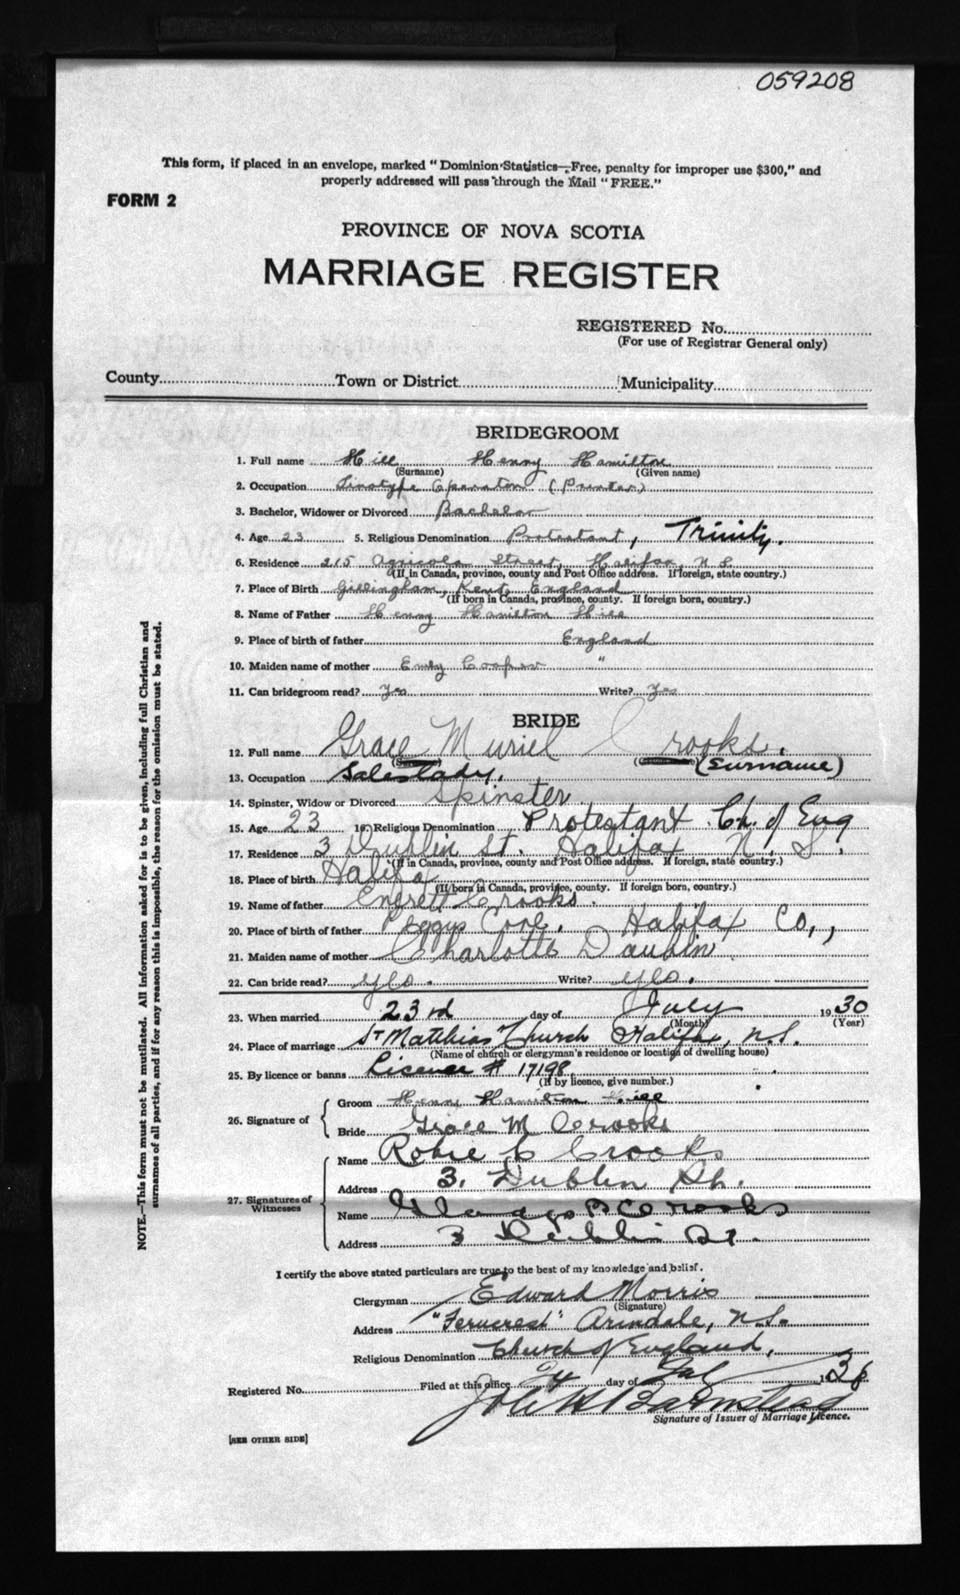 059208
This form, if placed in an envelope, marked "Dominion Statistics—Free, penalty for improper use $300," and
properly addressed will pass through the Mail "FREE."
FORM 2
PROVINCE OF NOVA SCOTIA
MARRIAGE REGISTER
REGISTERED No.
(For use of Registrar General only)
County Town or District Municipality
BRIDEGROOM
1. Full name Hill Henry Hamilton
(Surname) (Given name)
2. Occupation Linotype Operator (Printer)
3. Bachelor, Widower or Divorced Bachelor
4. Age 23 5. Religious Denomination Protestant, Trinity.
6. Residence 215 Agricola Street, Halifax, N.S.
(If in Canada, province, county and Post Office address. If foreign, state country.)
7. Place of Birth Gillingham, Kent, England
(If born in Canada, province, county. If foreign born, country.)
8. Name of Father Henry Hamilton Hill
9. Place of birth of father England
10. Maiden name of mother Emily Cooper "
11. Can bridegroom read? Yes Write? Yes
BRIDE
12. Full name Grace Muriel Crooks.
(Surname)
13. Occupation Saleslady.
14. Spinster, Widow or Divorced Spinster
15. Age 23 16. Religious Denomination Protestant Ch. of Eng
17. Residence 3 Dublin St. Halifax N.S.
(If in Canada, province, county and Post Office address. If foreign, state country.)
18. Place of birth Halifax
(If born in Canada, province, county. If foreign born, country.)
19. Name of father Everett Crooks.
20. Place of birth of father Peggys Cove, Halifax Co.,
21. Maiden name of mother Charlotte Daubin
22. Can bride read? yes. Write? yes.
23. When married 23rd day of July 1930
(Month) (Year)
24. Place of marriage St Matthias Church Halifax, N.S.
(Name of church or clergyman's residence or location of dwelling house)
25. By licence or banns License # 17198
(If by licence, give number.)
26. Signature of
Groom Henry Hamilton Hill
Bride Grace M Crooks
27. Signatures of Witnesses
Name Robie C Crooks
Address 3, Dublin St.
Name Gladys B Crooks
Address 3 Dublin St.
I certify the above stated particulars are true to the best of my knowledge and belief.
Clergyman Edward Morris
(Signature)
Address "Ferncrest" Armdale, N.S.
Religious Denomination Church of England,
Registered No. Filed at this office 24 day of Jul 1930
Signature of Issuer of Marriage Licence.
[SEE OTHER SIDE]
NOTE.—This form must not be mutilated. All information asked for is to be given, including full Christian and
surnames of all parties, and if for any reason this is impossible, the reason for the omission must be stated.